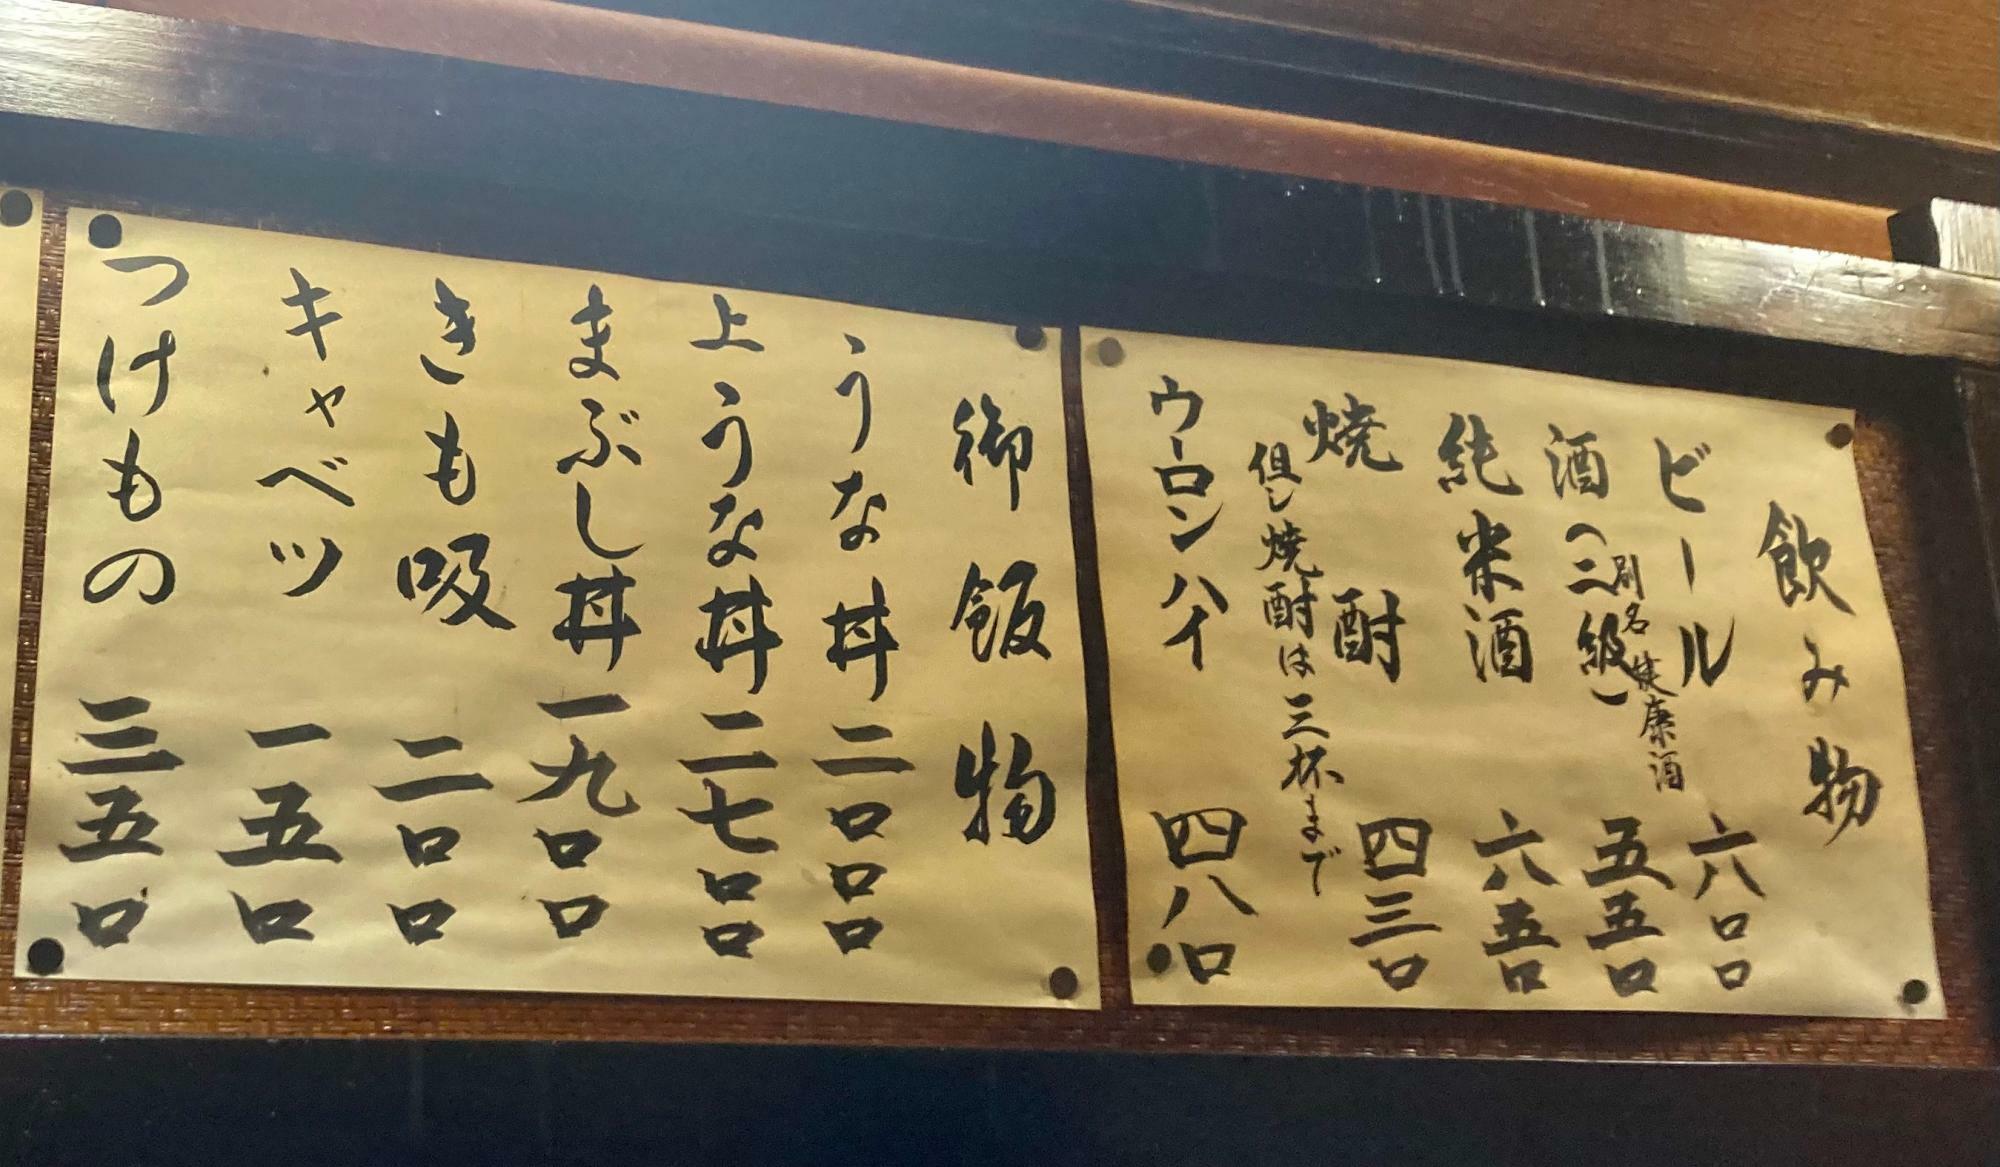 飲み物
ビール 六〇〇
酒(二級) 五五〇
別名 健康酒
純米酒 六五〇
焼酎 四三〇
但し焼酎は三杯まで
ウーロンハイ 四八〇
御飯物
うな丼 二〇〇〇
上うな丼 二七〇〇
まぶし丼 一九〇〇
きも吸 二〇〇
キャベツ 一五〇
つけもの 三五〇